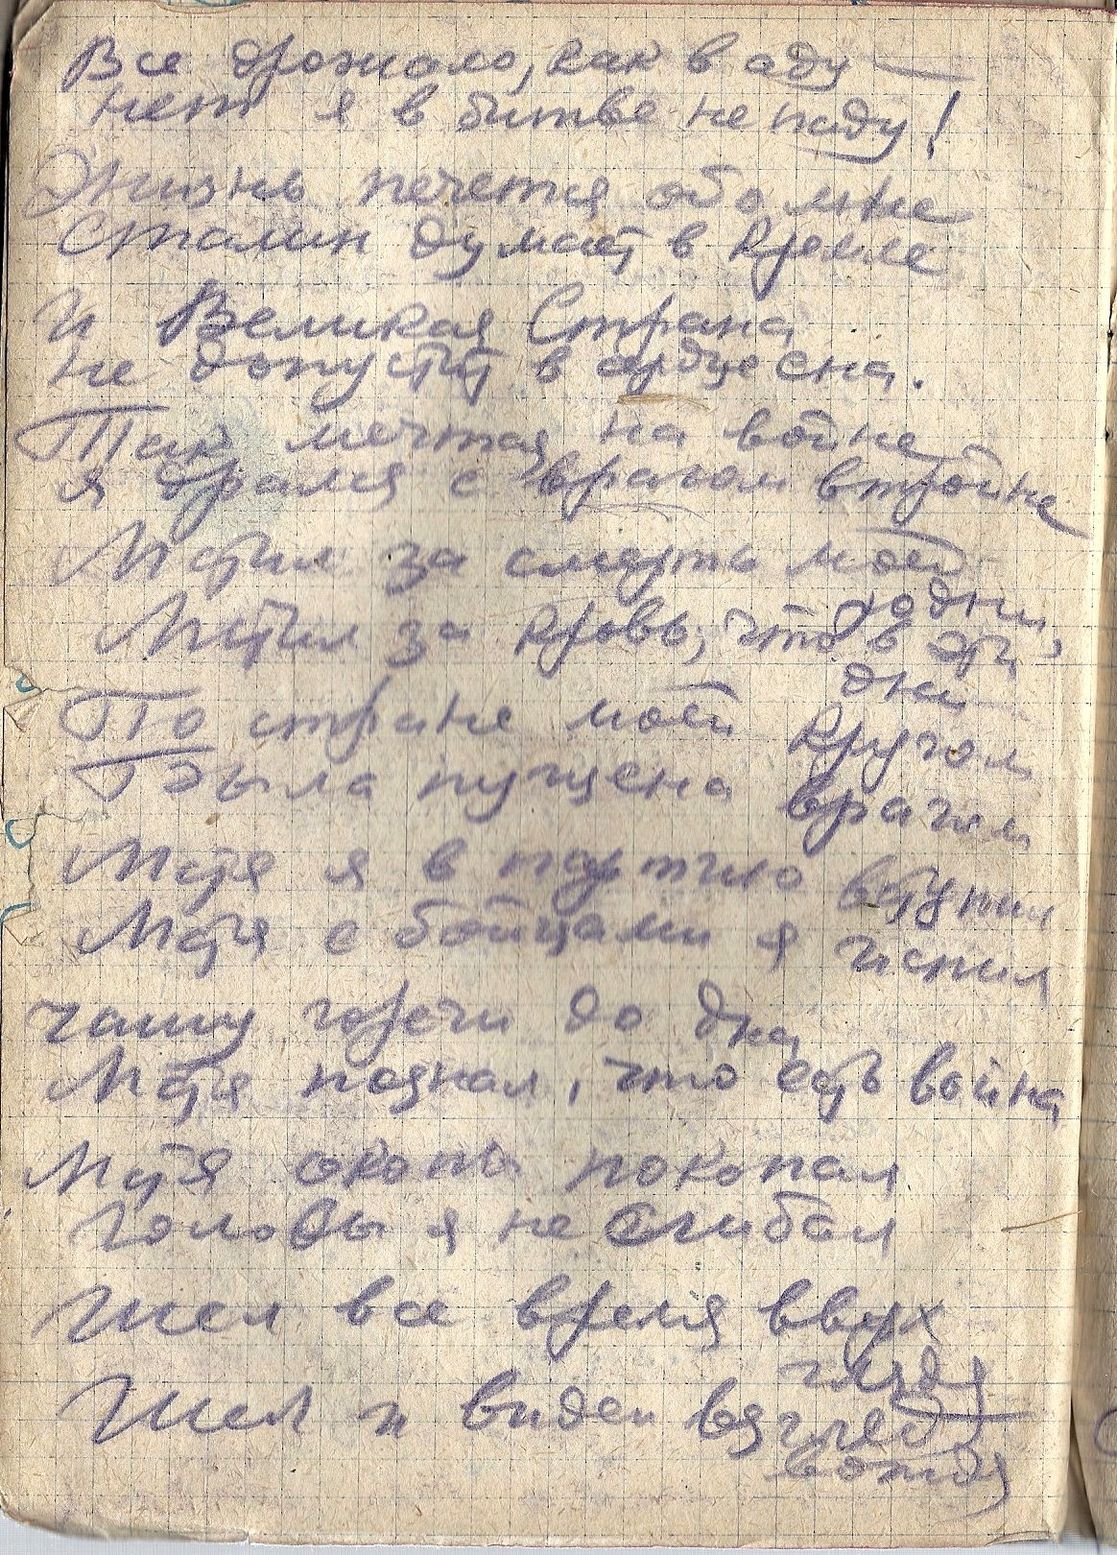 Все дрожало, как в аду —
нет я в битве не паду!
Жизнь печется обо мне
Сталин думает в Кремле
и Великая Страна
не допустит в сердце сна.
Так мечтая на войне
я дрался с врагом втройне
Мстил за смерть моей
родни,
Мстил за кровь, что в эти
дни
По стране моей кругом
Была пущена врагом
Мстя я в партию вступил
Мстя с бойцами я испил
чашу горечи до дна
Мстя познал, что есть война
Мстя окопы покопал
Головы я не сгибал
Шел все время вверх
глядя
Шел и видел взгляд
вождя